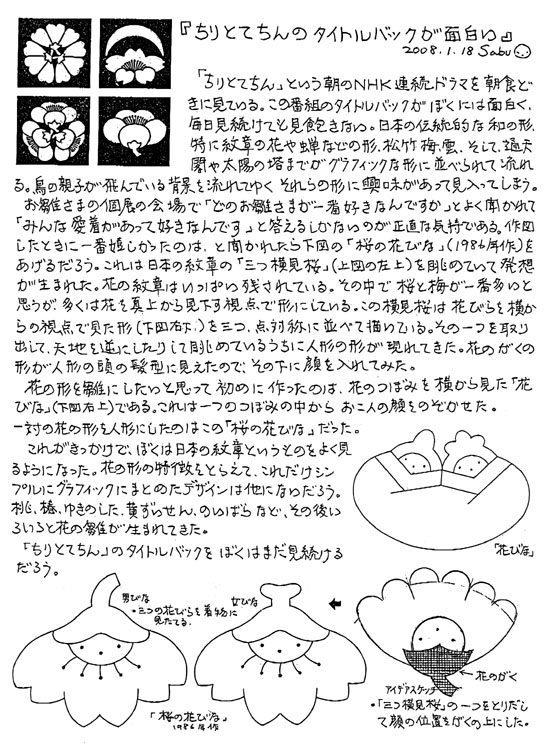 『ちりとてちんのタイトルバックが面白い』
2008.1.18 Sabu
「ちりとてちん」という朝のNHK連続ドラマを朝食ど
きに見ている。この番組のタイトルバックがぼくには面白く、
毎日見続けても見飽きない。日本の伝統的な和の形、
特に紋章の花や蝉などの形、松竹梅、雲、そして、通天
閣や太陽の塔までがグラフィックな形に並べられて流れ
る。鳥の親子が飛んでいる背景を流れてゆくそれらの形に興味があって見入ってしまう。
お雛さまの個展の会場で「どのお雛さまが一番好きなんですか」とよく聞かれて
「みんな愛着があって好きなんです」と答えるしかないのが正直な気持である。作図
したときに一番嬉しかったのは、と聞かれたら下図の「桜の花びな」(1986年作)を
あげるだろう。これは日本の紋章の「三つ横見桜」(上図の左上)を眺めていて発想
が生まれた。花の紋章はいっぱい残されている。その中で桜と梅が一番多いと
思うが、多くは花を真上から見下す視点で形にしている。この横見桜は花びらを横か
らの視点で見た形(下図右下)を三つ、点対称に並べて描いている。その一つを取り
出して、天地を逆にしたりして眺めているうちに人形の形が現れてきた。花のがくの
形が人形の頭の髪型に見えたので、その下に顔を入れてみた。
花の形を雛にしたいと思って初めに作ったのは、花のつぼみを横から見た「花
びな」(下図右上)である。これは一つのつぼみの中からお二人の顔をのぞかせた。
一対の花の形を人形にしたのはこの「桜の花びな」だった。
これがきっかけで、ぼくは日本の紋章というものをよく見
るようになった。花の形の特徴をとらえて、これだけシン
プルにグラフィックにまとめたデザインは他にないだろう。
桃、椿、ゆきのした、黄ずいせん、のいばらなど、その後い
ろいろと花の雛が生まれてきた。
「ちりとてちん」のタイトルバックをぼくはまだ見続ける
だろう。
「花びな」
男びな
・三つの花びらを着物に
見たてる.
女びな
「桜の花びな」
1986年作
花のがく
アイデアスケッチ
・「三つ横見桜」の一つをとりだし
て顔の位置をがくの上にした。